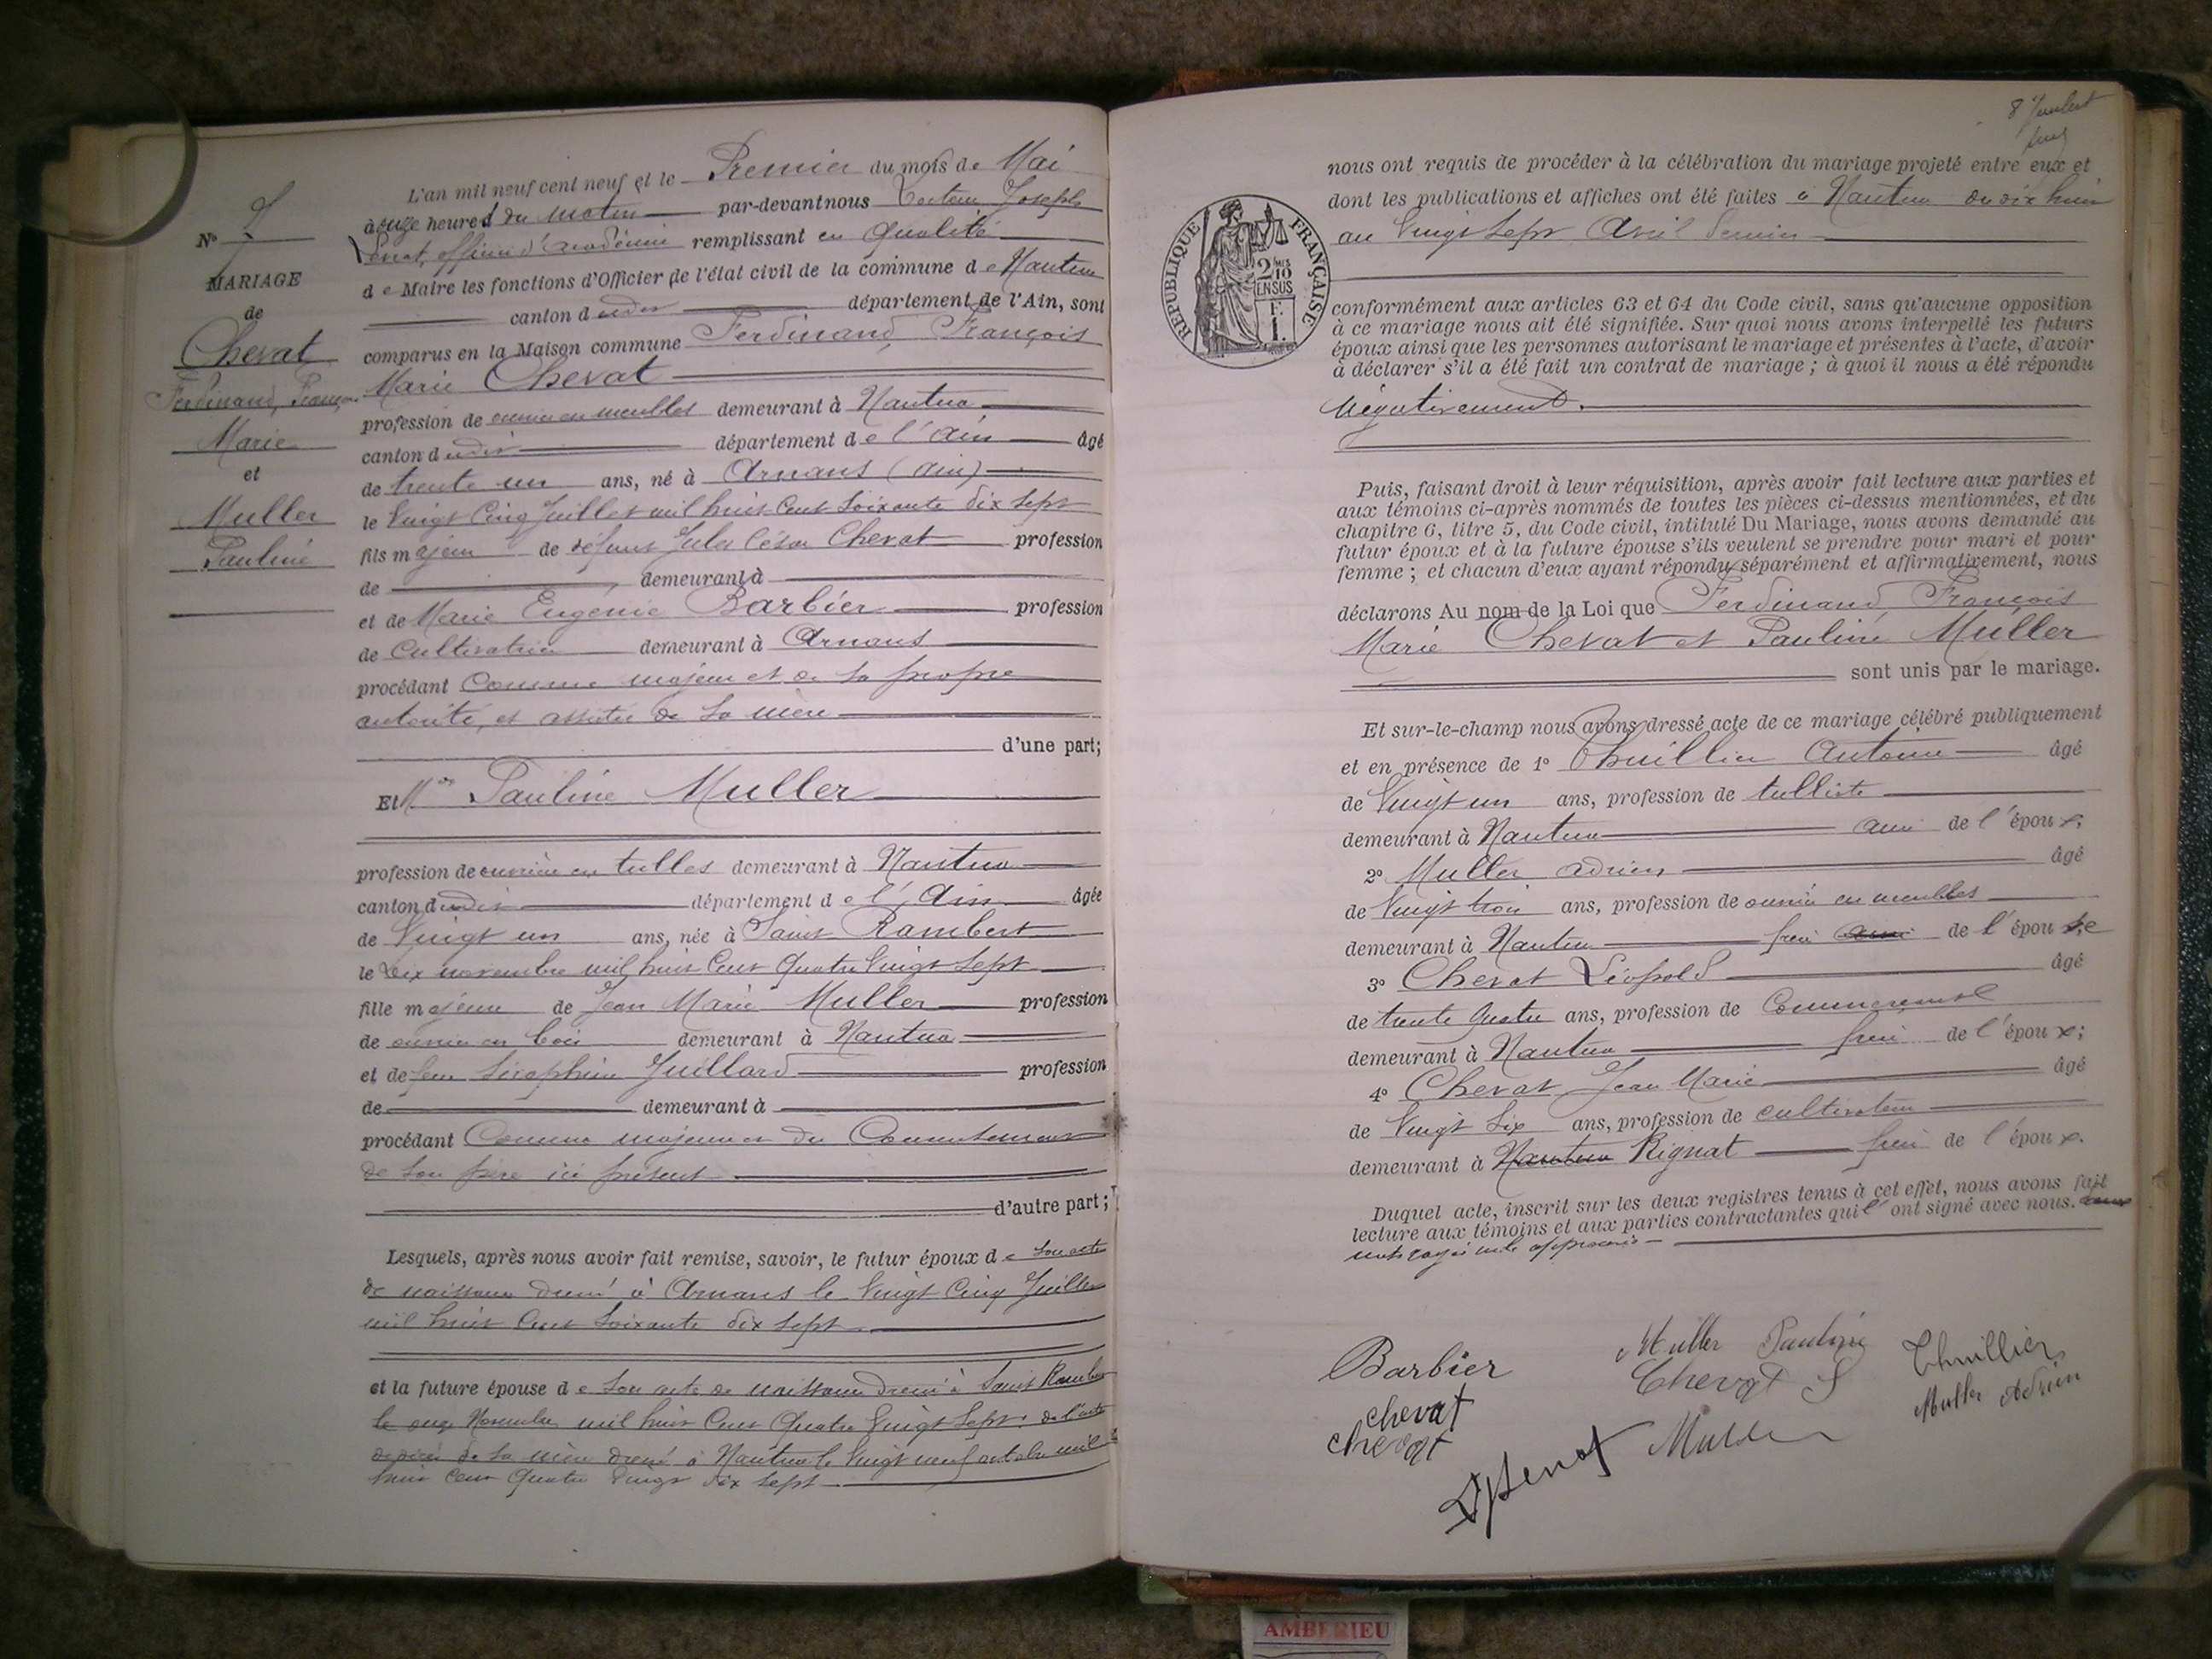 Nº 7
MARIAGE
de
Chevat
Ferdinand, François
Marie
et
Muller
Pauline
L'an mil neuf cent neuf et le Premier du mois de Mai
à onze heures du matin par-devant nous Docteur Joseph
officier d'académie remplissant en qualité
de Maire les fonctions d'Officier de l'état civil de la commune de Nantua
canton dudit département de l'Ain, sont
comparus en la Maison commune Ferdinand, François
Marie Chevat
profession de ouvrier en meubles demeurant à Nantua
canton dudit département de l'Ain âgé
de trente un ans, né à Arnans (Ain)
le Vingt Cinq Juillet mil huit Cent Soixante dix sept
fils majeur de défunt Jules César Chevat profession
de demeurant à
et de Marie Eugénie Barbier profession
de Cultivatrice demeurant à Arnans
procédant Comme majeur et de sa propre
autorité, et assisté de sa mère
d'une part;
Et Mlle Pauline Muller
profession de ouvrière en tulles demeurant à Nantua
canton dudit département de l'Ain âgée
de Vingt un ans, née à Saint Rambert
le dix novembre mil huit Cent Quatre Vingt Sept
fille majeure de Jean Marie Muller profession
de ouvrier en bois demeurant à Nantua
et de feue Séraphine Juillard profession
de demeurant à
procédant Comme majeure et du Consentement
de son père ici présent
d'autre part;
Lesquels, après nous avoir fait remise, savoir, le futur époux de son acte
de naissance dressé à Arnans le Vingt Cinq Juillet
mil huit Cent Soixante dix sept
et la future épouse de son acte de naissance dressé à Saint Rambert
le onze Novembre mil huit Cent Quatre Vingt Sept. de l'acte
de décès de sa mère dressé à Nantua le Vingt neuf octobre mil
huit cent Quatre Vingt dix sept
8
nous ont requis de procéder à la célébration du mariage projeté entre eux et
dont les publications et affiches ont été faites à Nantua du dix huit
au Vingt Sept Avril dernier
RÉPUBLIQUE FRANÇAISE
2/10
EN SUS
F.
1.
conformément aux articles 63 et 64 du Code civil, sans qu'aucune opposition
à ce mariage nous ait été signifiée. Sur quoi nous avons interpellé les futurs
époux ainsi que les personnes autorisant le mariage et présentes à l'acte, d'avoir
à déclarer s'il a été fait un contrat de mariage ; à quoi il nous a été répondu
négativement.
Puis, faisant droit à leur réquisition, après avoir fait lecture aux parties et
aux témoins ci-après nommés de toutes les pièces ci-dessus mentionnées, et du
chapitre 6, titre 5, du Code civil, intitulé Du Mariage, nous avons demandé au
futur époux et à la future épouse s'ils veulent se prendre pour mari et pour
femme ; et chacun d'eux ayant répondu séparément et affirmativement, nous
déclarons Au nom de la Loi que Ferdinand François
Marie Chevat et Pauline Muller
sont unis par le mariage.
Et sur-le-champ nous avons dressé acte de ce mariage célébré publiquement
et en présence de 1º Thuillier Antoine âgé
de Vingt un ans, profession de tulliste
demeurant à Nantua ami de l'époux;
2º Muller Adrien âgé
de Vingt trois ans, profession de ouvrier en meubles
demeurant à Nantua frère ami de l'épouse
3º Chevat Léopold âgé
de trente Quatre ans, profession de Commerçant
demeurant à Nantua frère de l'époux;
4º Chevat Jean Marie âgé
de Vingt Six ans, profession de cultivateur
demeurant à Nantua Rignat frère de l'époux.
Duquel acte, inscrit sur les deux registres tenus à cet effet, nous avons fait
lecture aux témoins et aux parties contractantes qui l'ont signé avec nous.
mots rayés nuls approuvés
Barbier
Muller Pauline
Thuillier
Chevat
Chevat L
Muller Adrien
Chevat
Muller
AMBERIEU